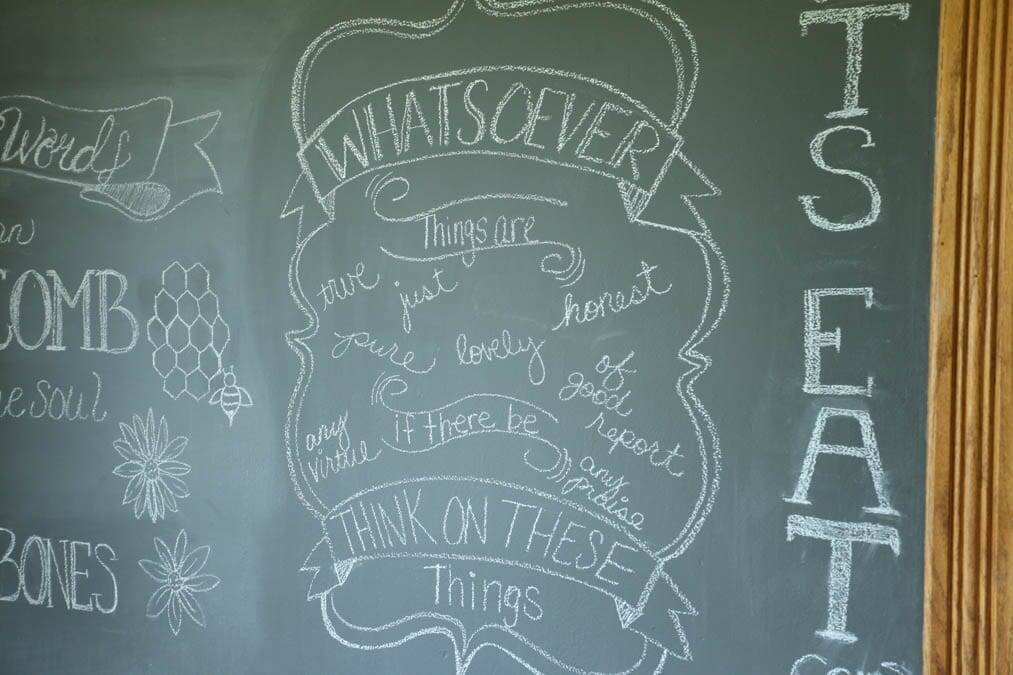 Words
COMB
he soul
BONES
WHATSOEVER
Things are
true just honest
pure lovely of
good
report
If there be
any
virtue
any
praise
THINK ON THESE
Things
T
S
E
A
T